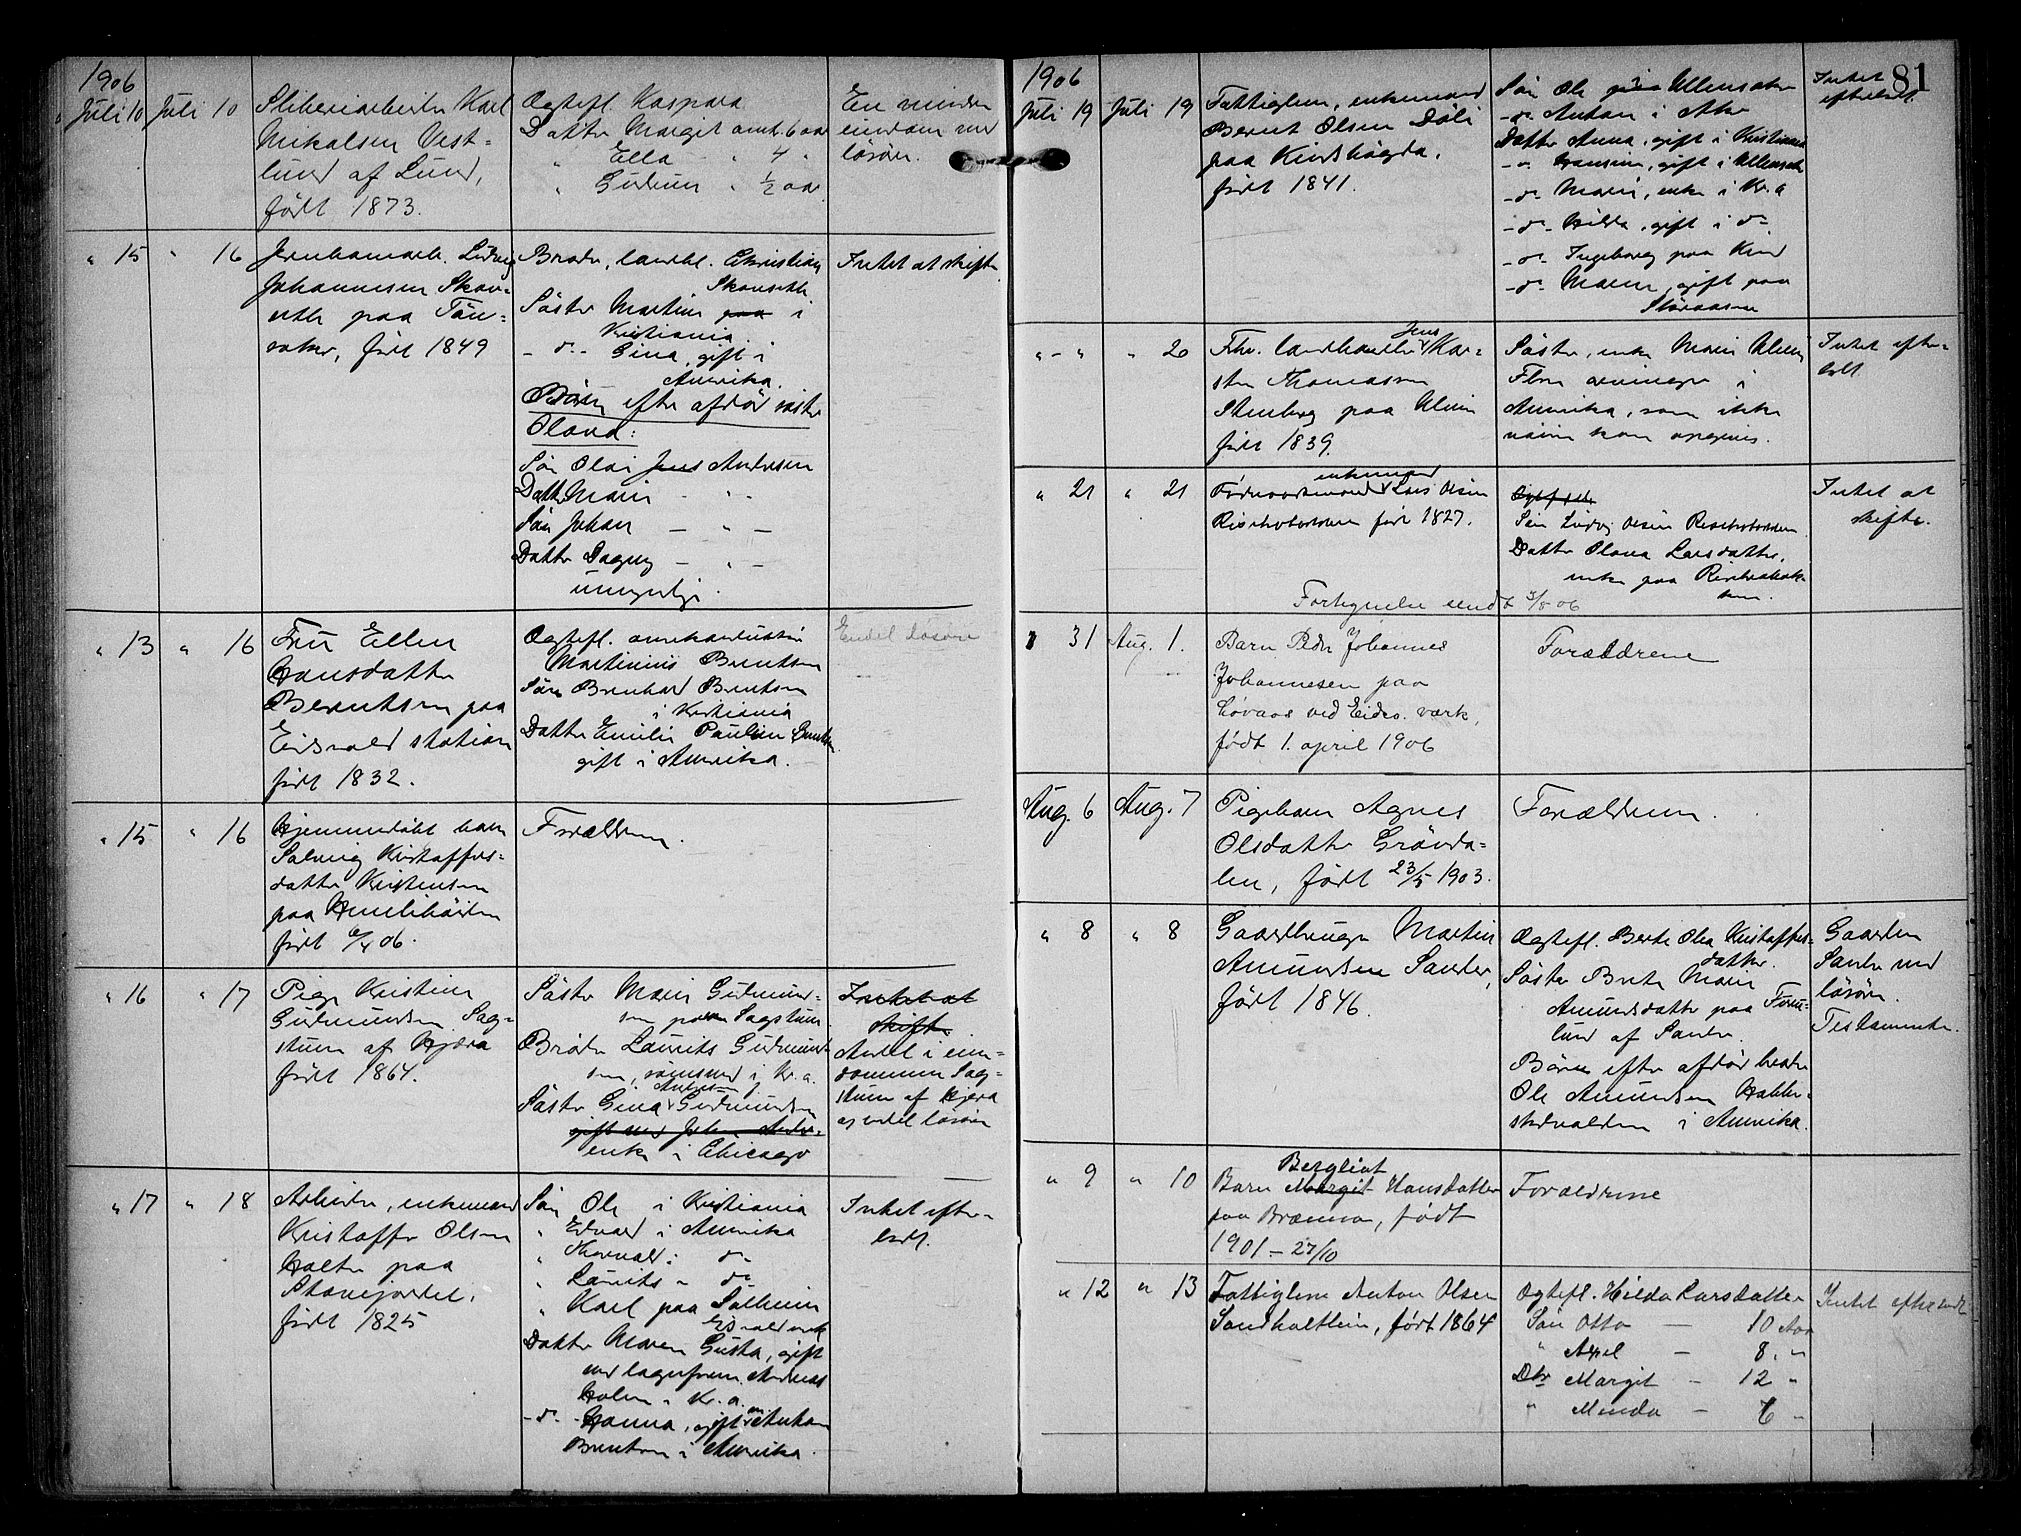 1906
Juli 10 Juli 10
Sliberiarbeider Karl
Mikalsen Vest-
lund af Lund,
født 1873.
Ogtefl. Kaspara
Datter Margit omt. 6 aar
" Ella - " 4 "
" Gudrun " 1/2 aar
En mindre
eiendom med
løsøre.
" 15 " 16
Jernbanearb. Ludvig
Johannesen Skan-
sette paa Tøn-
saker, født 1849
Broder, landbl. Christian
Skansette
Søster Martine paa i
Kristiania
- do - Gina, gift i
Amerika.
Børn efter afdød søster
Olava:
Søn Olai Jens Andresen
Datter Marie - " -
Søn Johan - " -
Datter Dagny - " -
umyndige.
Intet at skifte
" 13 " 16
Fru Ellen
Hansdatter
Berntsen paa
Eidsvold station
født 1832.
Ogtefl.
Martinius Berntsen
Søn Bernhard Berntsen
i Kristiania
Datter Emilie Pauline Berntsen
gift i Amerika.
Endel løsøre
" 15 " 16
Hjemmedøbt barn
Solveig Kristoffers-
datter Kristensen
paa
født 6/4 06.
Forældrene.
" 16 " 17
Pige Kristine
Gudmundsen Sag-
stuen af Hjera
født 1864.
Søster Marie Gudmund-
sen paa Sagstuen.
Broder Laurits Gudmund-
sen, sømand i Kr.a.
Andersen
Søster Gina Gudmundsen
gift med Johan Ander-
enke i Chicago
Intet at
skifte
Andel i eien-
dommen Sag-
stuen af Hjera
og endel løsøre
" 17 " 18
Arbeider, enkemand
Kristoffer Olsen
Holter paa
født 1825
Søn Ole i Kristiania
" Edvard i Amerika
" Thorvald i do
" Laurits " do
" Karl paa Solheim
Eidsvold verk
Datter Maren Gusta, gift
med lagerform. Andreas
Holm i Kr.a.
- do - Hanna, gift m. Anton
Berntsen i Amerika.
Intet efter-
ladt.
1906 81
Juli 19 Juli 19
Fattiglem, enkemand
Bernt Olsen Døli
paa Kindshøgda,
født 1841.
Søn Ole i Ullensaker
- do - Anton i Asker
Datter Anna, gift i Kristiania
- do - Hansine, gift i Ullensaker
- do - Marie, enke i Kr.a
- do - Hilda, gift i do
- do - Ingeborg paa Kind
- do - Maren, gift paa
Støraasen
Intet
efterladt.
" - " " 20
Fhv. landhandler Jens Kar-
sten Thomassen
Stenberg paa Alm
født 1839.
Søster, enke Marie Alm
Flere arvinger i
Amerika, som ikke
navn kan opgives.
Intet efter-
ladt.
" 21 " 21
enkemand
Føderaadsmand Lars Olsen
Risebrobakken født 1827.
Ogtefelle
Søn Ludvig Olsen Risebrobakken
Datter Olava Larsdatter,
enke paa Risebrobak-
ken.
Intet at
skifte.
Fortegnelse sendt 3/8 06
" 31 Aug. 1.
Barn Peder Johannes
Johannesen paa
Løvaas ved Eidsv. værk,
født 1. april 1906
Forældrene
Aug. 6 Aug. 7
Pigebarn Agnes
Olsdatter Grønda-
len, født 23/5 1903.
Forældrene.
" 8 " 8
Gaardbruger Martin
Amundsen Sander,
født 1846.
Ogtefl. Berte Olea Kristoffers-
datter.
Søster Berte Marie
Amundsdatter paa Furu-
lund af Sander.
Børn efter afdød broder
Ole Amundsen Habber-
stadvalden i Amerika.
Gaarden
Sander med
løsøre.
Testamente.
" 9 " 10
Bergliot
Barn Margit Hansdatter
paa Brænna, født
1901 - 27/10
Forældrene
" 12 " 13
Fattiglem Anton Olsen
Sandholtlien, født 1864
Ogtefl. Hilda Larsdatter
Søn Otto - 10 Aar
" Axel - 8 " "
Dtr Margit - 12 "
" Minda - 6 "
Intet efterladt